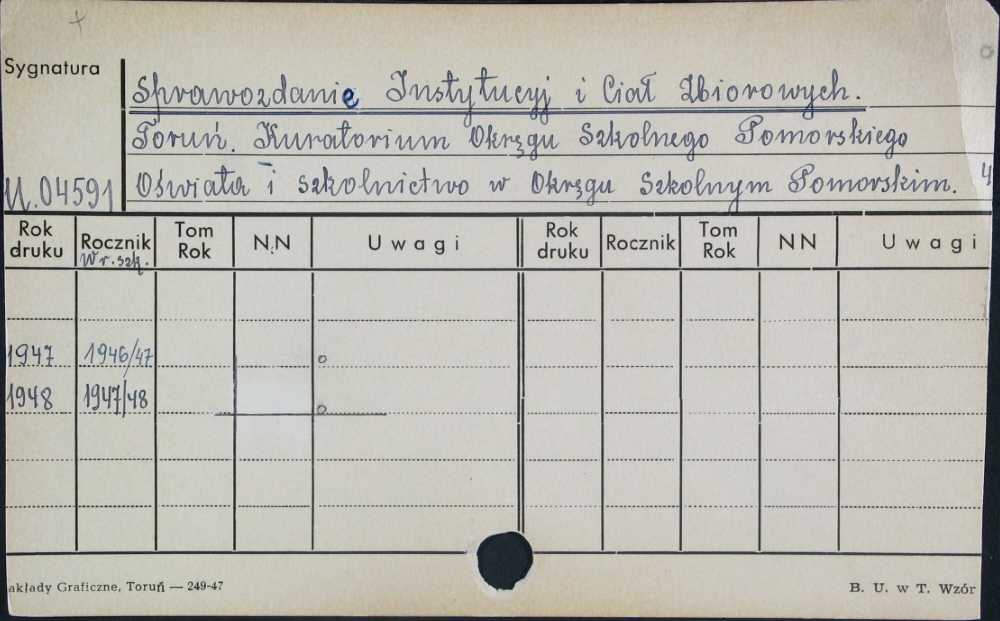 Sygnatura
Sprawozdanie Instytucyj i Ciał Zbiorowych.
Toruń. Kuratorium Okręgu Szkolnego Pomorskiego
U.04591 Oświata i szkolnictwo w Okręgu Szkolnym Pomorskim. 4
Rok druku Rocznik Wr.szk. Tom Rok N.N Uwagi Rok druku Rocznik Tom Rok NN Uwagi
1947 1946/47
1948 1947/48
akłady Graficzne, Toruń — 249-47 B. U. w T. Wzór